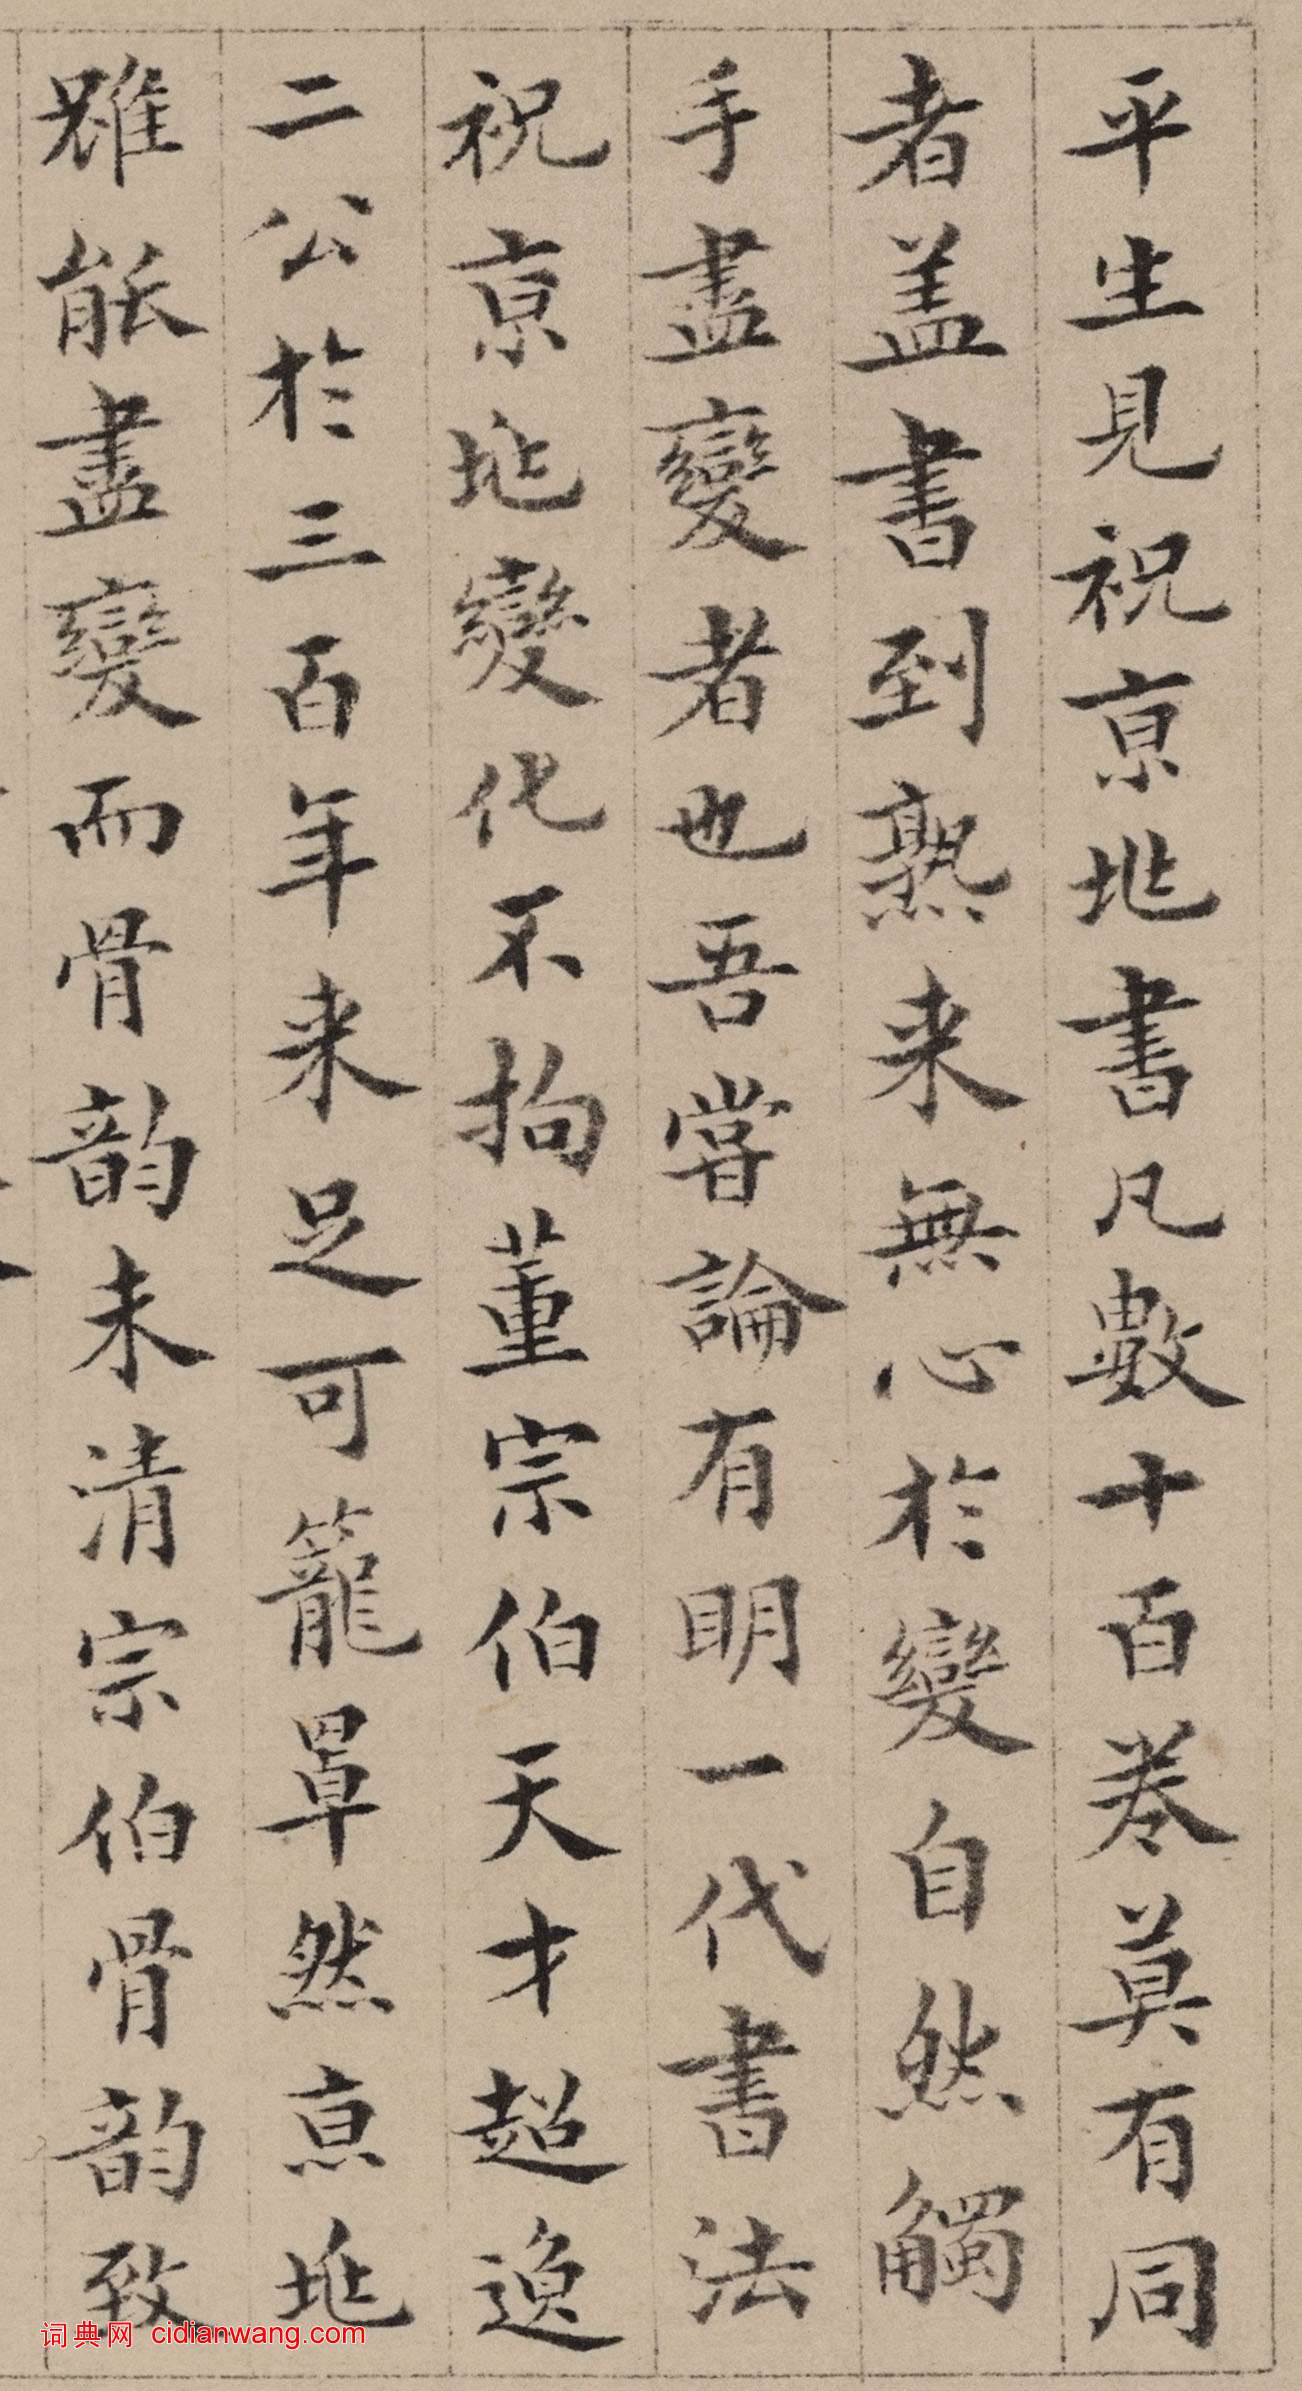 平生見祝京兆書凡數十百卷莫有同
者蓋書到熟来無心於變自然觸
手盡變者也吾嘗論有明一代書法
祝京兆變化不拘董宗伯天才超逸
二公於三百年来足可籠罩然京兆
雖能盡變而骨韵未清宗伯骨韵致
词典网 cidianwang.com